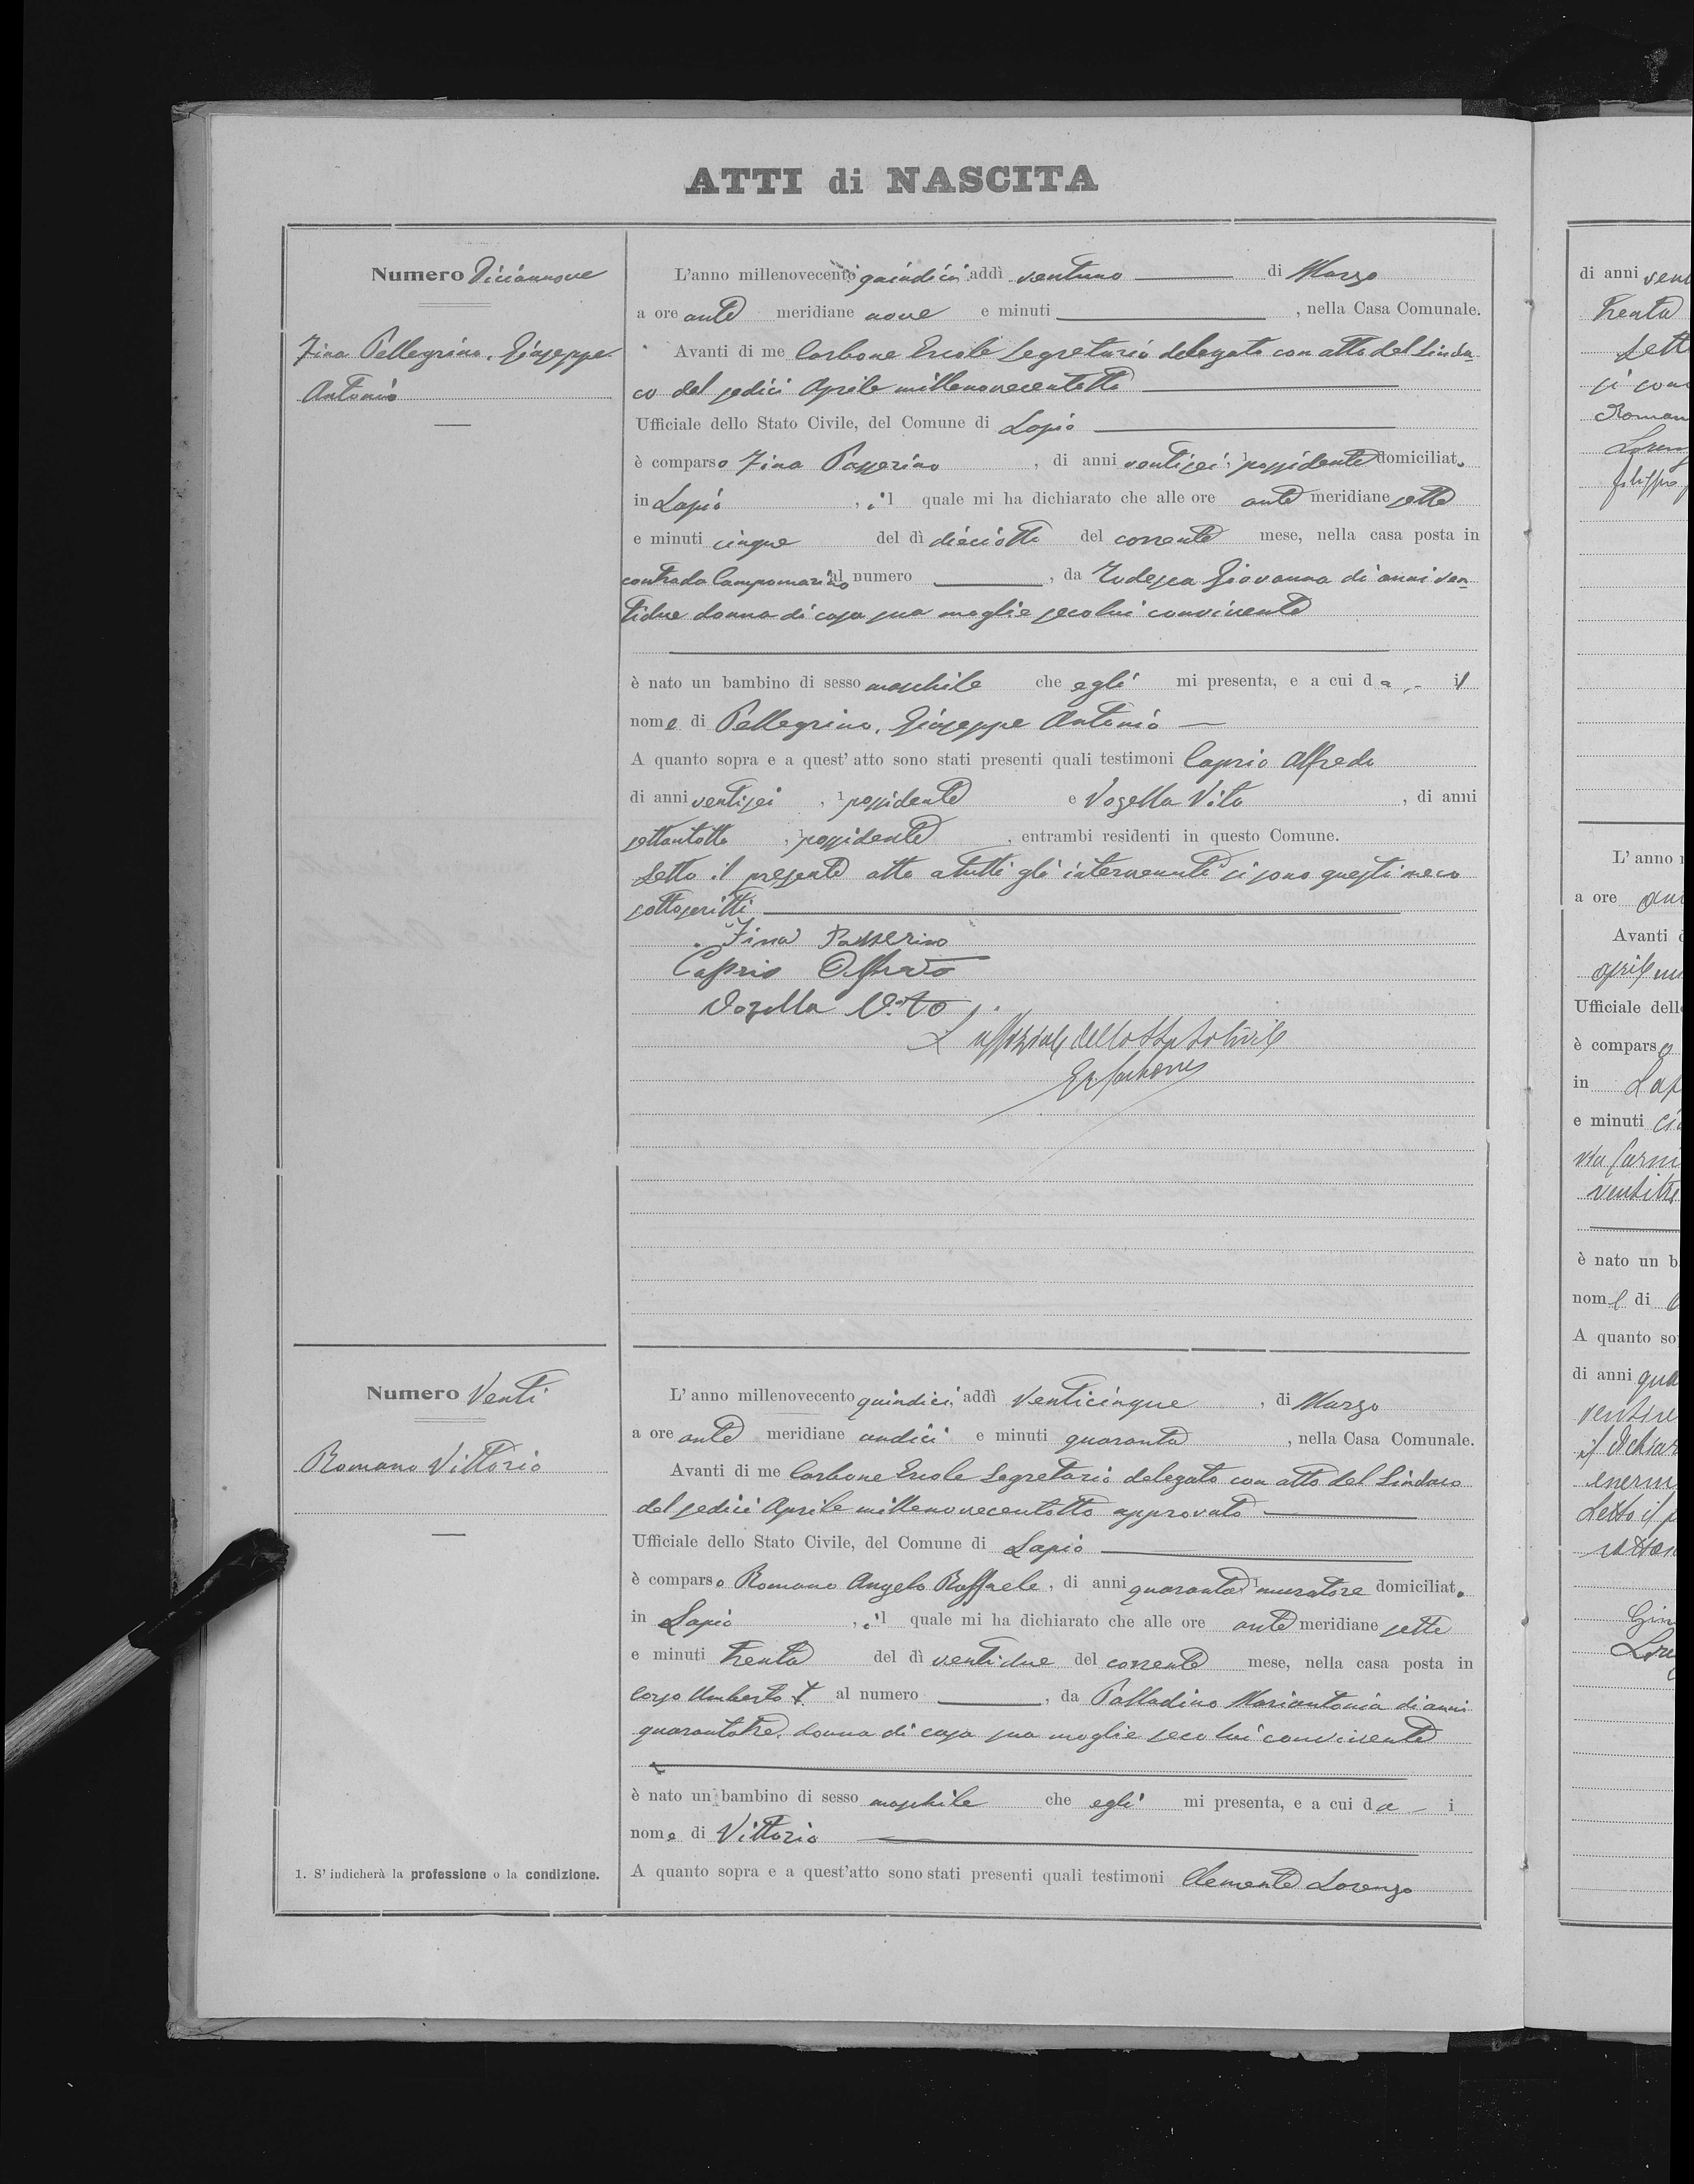 ATTI di NASCITA
Numero Diciannove
Fina Pellegrino, Giuseppe
Antonio
L'anno millenovecento quindici, addì ventuno di Marzo
a ore ante meridiane nove e minuti , nella Casa Comunale.
Avanti di me Carbone Ercole Segretario delegato con atto del Sinda-
co del sedici Aprile millenovecentotto
Ufficiale dello Stato Civile, del Comune di Lapio
è comparso Fina Passerino , di anni ventisei, 1 possidente domiciliato
in Lapio , il quale mi ha dichiarato che alle ore ante meridiane sette
e minuti cinque del dì dieciotto del corrente mese, nella casa posta in
contrada Campomarino al numero , da Tudesca Giovanna di anni ven-
tidue donna di casa sua moglie seco lui convivente
è nato un bambino di sesso maschile che egli mi presenta, e a cui da il
nome di Pellegrino, Giuseppe Antonio
A quanto sopra e a quest' atto sono stati presenti quali testimoni Caprio Alfredo
di anni ventisei , 1 possidente e Vozella Vito , di anni
settantotto , 1 possidente , entrambi residenti in questo Comune.
Letto il presente atto a tutti gli intervenuti si sono questi meco
sottoscritti
Fina Passerino
Caprio Alfredo
Vozella Vito
L'uffiziale dello Stato Civile
Er. Carbone
Numero Venti
Romano Vittorio
L'anno millenovecento quindici, addì venticinque , di Marzo
a ore ante meridiane undici e minuti quaranta , nella Casa Comunale.
Avanti di me Carbone Ercole Segretario delegato con atto del Sindaco
del sedici Aprile millenovecentotto approvato
Ufficiale dello Stato Civile, del Comune di Lapio
è comparso Romano Angelo Raffaele, di anni quaranta, 1 muratore domiciliato
in Lapio , il quale mi ha dichiarato che alle ore ante meridiane sette
e minuti trenta del dì ventidue del corrente mese, nella casa posta in
Corso Umberto I. al numero , da Palladino Mariantonia di anni
quarantatre, donna di casa sua moglie seco lui convivente
è nato un bambino di sesso maschile che egli mi presenta, e a cui da i
nome di Vittorio
A quanto sopra e a quest'atto sono stati presenti quali testimoni Clemente Lorenzo
1. S' indicherà la professione o la condizione.
di anni
trenta
L'anno
a ore
Avanti
Ufficiale dell
è comparso
in Lap
e minuti
è nato un b
nome di
A quanto so
di anni qua